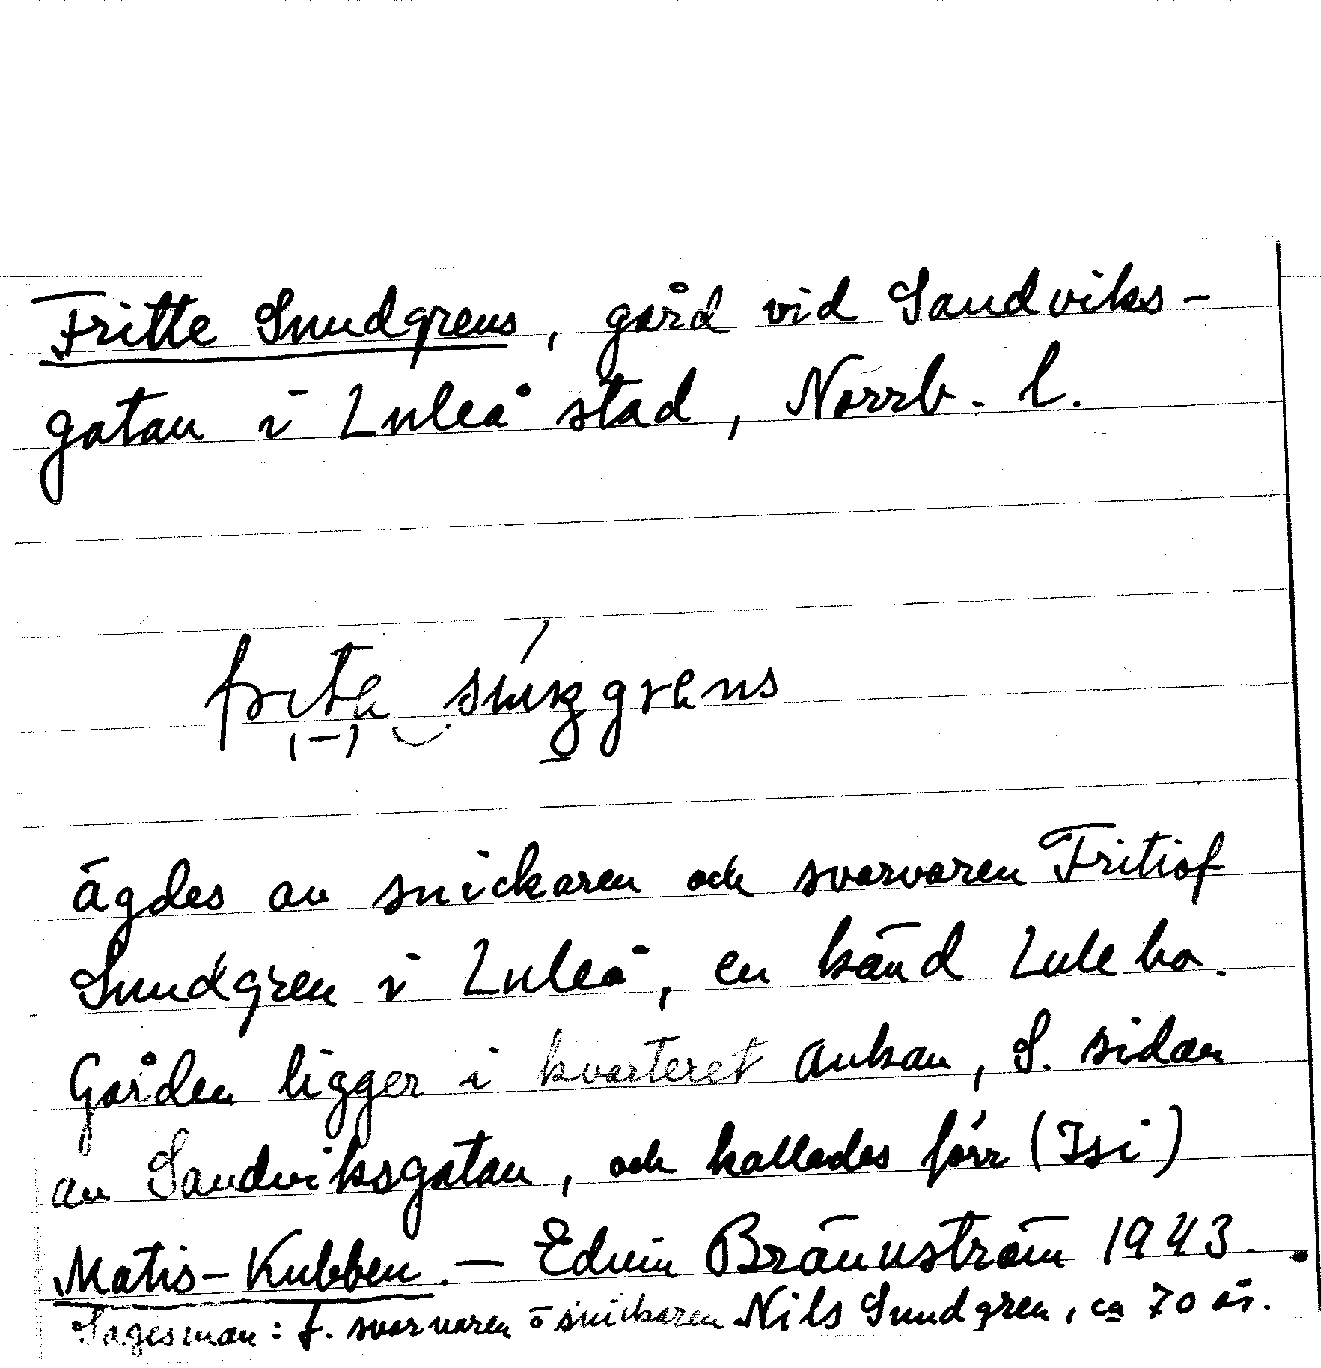 Fritte Sundgrens, gård vid Sandviks-
gatan i Luleå stad, Norrb. l.
ägdes av snickaren och svarvaren Fritiof
Sundgren i Luleå, en känd Lulebo.
Gården ligger i kvarteret Ankan, S. sidan
av Sandviksgatan, och kallades förr (Isi)
Matis-Kubben. — Edvin Brännström 1943.
Sagesman: f. svarvaren o snickaren Nils Sundgren, ca 70 år.